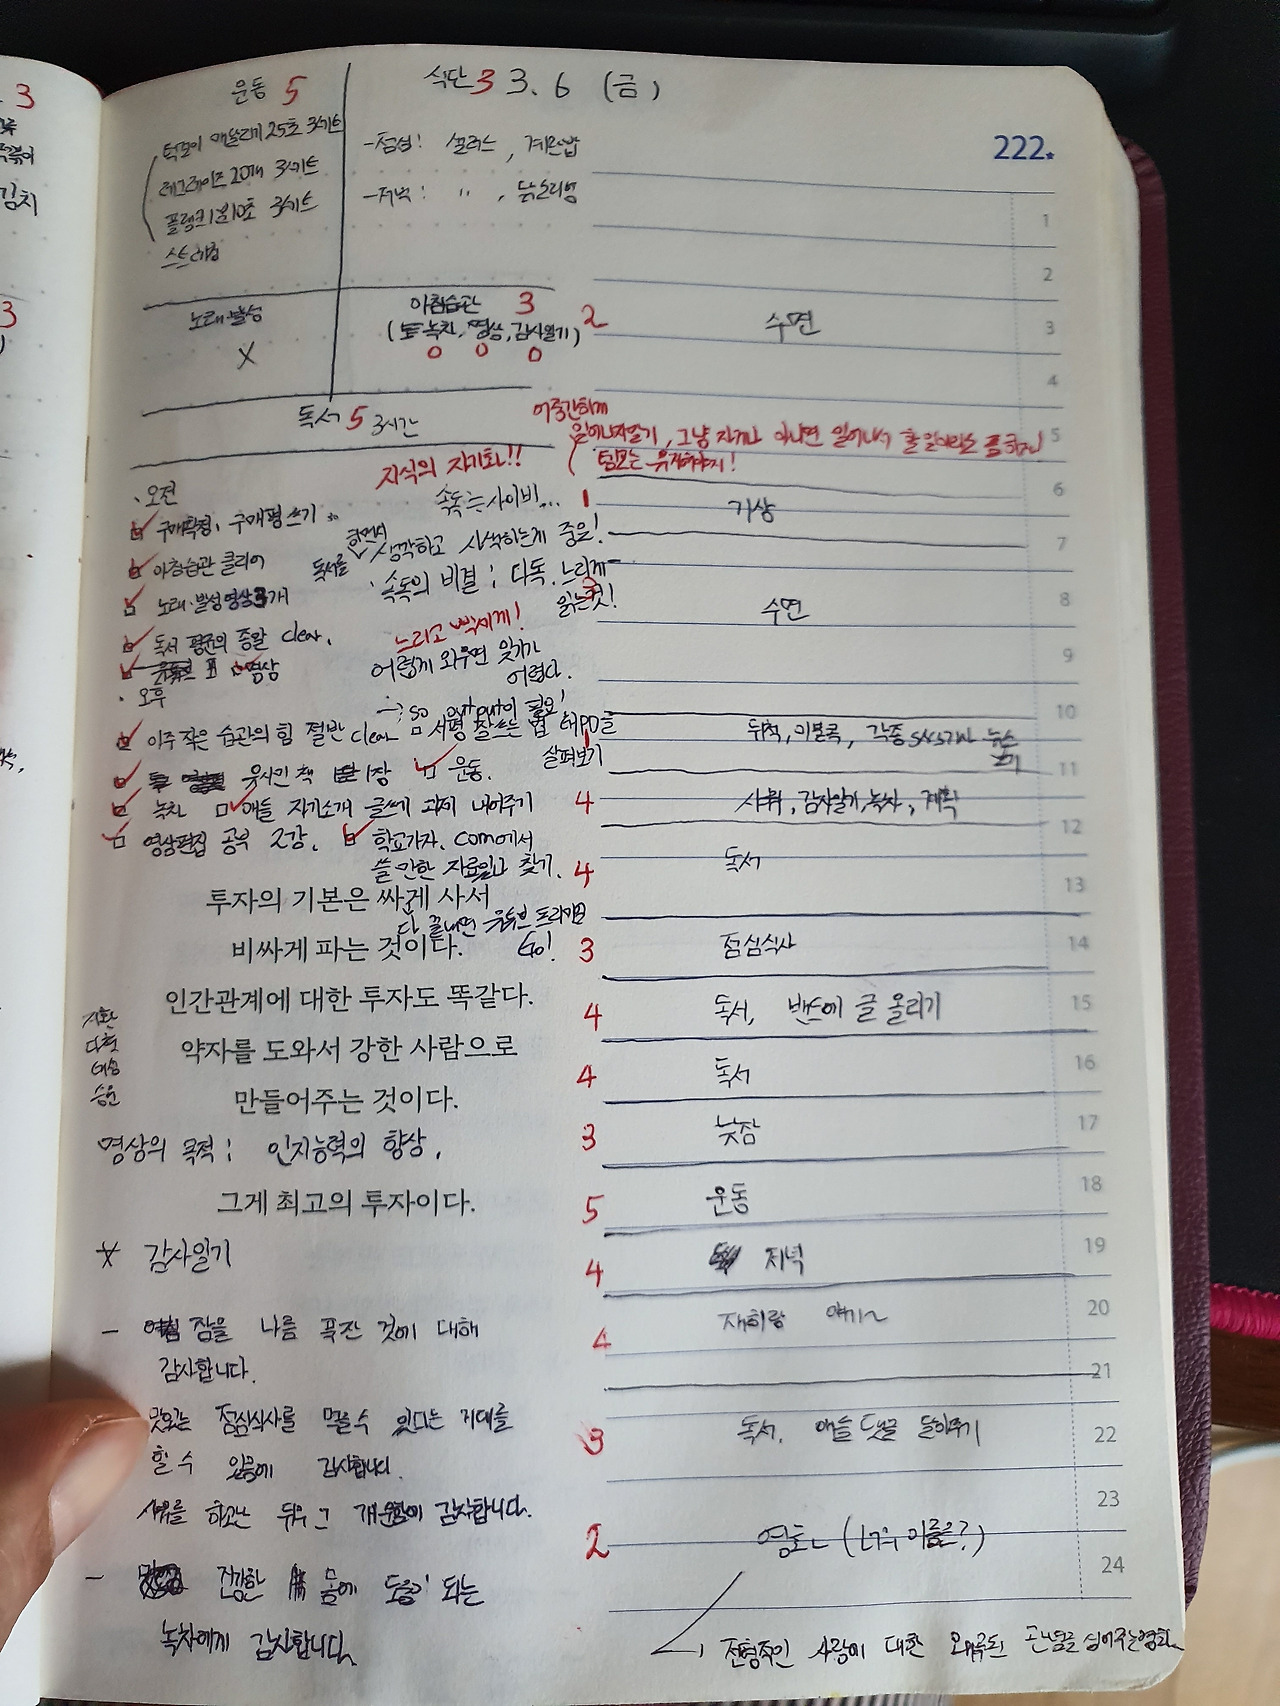 운동 5
식단 3 3. 6 (금)
222
턱모아 25초 3세트
레그레이즈 20개 3세트
플랭크 1분10초 3세트
스트레칭
-점심: 샐러드, 계란밥
-저녁: " ,
노래·발성
X
아침습관 3
(녹차, 명상, 감사일기)
O O O
독서 5 3시간
지식의 자기화!!
어중간하게
일어나지말기, 그냥 자거나 아니면 일어나서 할일이라도
템포는 유지해야지!
속독은 사이비...
· 오전
구매확정, 구매평 쓰기
아침습관 클리어
노래·발성영상 3개
독서 평균의 종말 clear.
명상
독서를 하면서 생각하고 사색하는게 좋음!
· 속독의 비결 : 다독. 느리게
읽는것!
느리고 빡세게!
어렵게 외우면 잊기가
어렵다.
→ so output이 필요!
· 오후
아주 작은 습관의 힘 절반 clear
서평 잘쓰는 법 태PD를
살펴보기
유시민 책 1장
운동.
녹차
애들 자기소개 글쓰기 과제 내어주기
영상편집 공부 2강.
학교가자.com에서
쓸 만한 자료있나 찾기.
다 끝내면 유튜브 프리미엄
Go!
투자의 기본은 싸게 사서
비싸게 파는 것이다.
인간관계에 대한 투자도 똑같다.
약자를 도와서 강한 사람으로
만들어주는 것이다.
명상의 목적 : 인지능력의 향상.
그게 최고의 투자이다.
* 감사일기
- 잠을 나름 푹잔 것에 대해
감사합니다.
맛있는 점심식사를 먹을수 있다는 기대를
할 수 있음에 감사합니다.
샤워를 하고난 뒤의 그 개운함에 감사합니다.
- 건강한 몸에 도움이 되는
녹차에게 감사합니다.
1
2
2 수면 3
4
5
1 기상 6
7
수면 8
9
10
뒤척, 미분쿡, 각종 뉴스
보기 11
4 샤워, 감사일기, 녹차, 계획
12
4 독서
13
3 점심식사 14
4 독서, 밴드에 글 올리기 15
4 독서 16
3 낮잠 17
5 운동 18
4 저녁 19
4 재희랑 얘기~ 20
21
3 독서. 애들 댓글 달아주기 22
23
2 영화 (너의 이름은?)
24
전형적인 사랑에 대한 왜곡된 관념을 심어주는영화